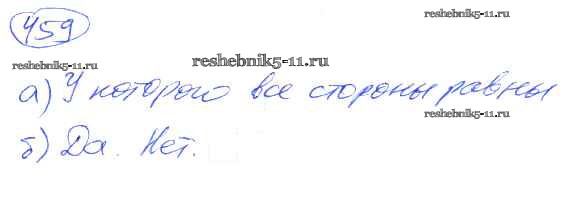 459
reshebnik5-11.ru
reshebnik5-11.ru
а) У которого все стороны равны
reshebnik5-11.ru
б) Да. Нет.